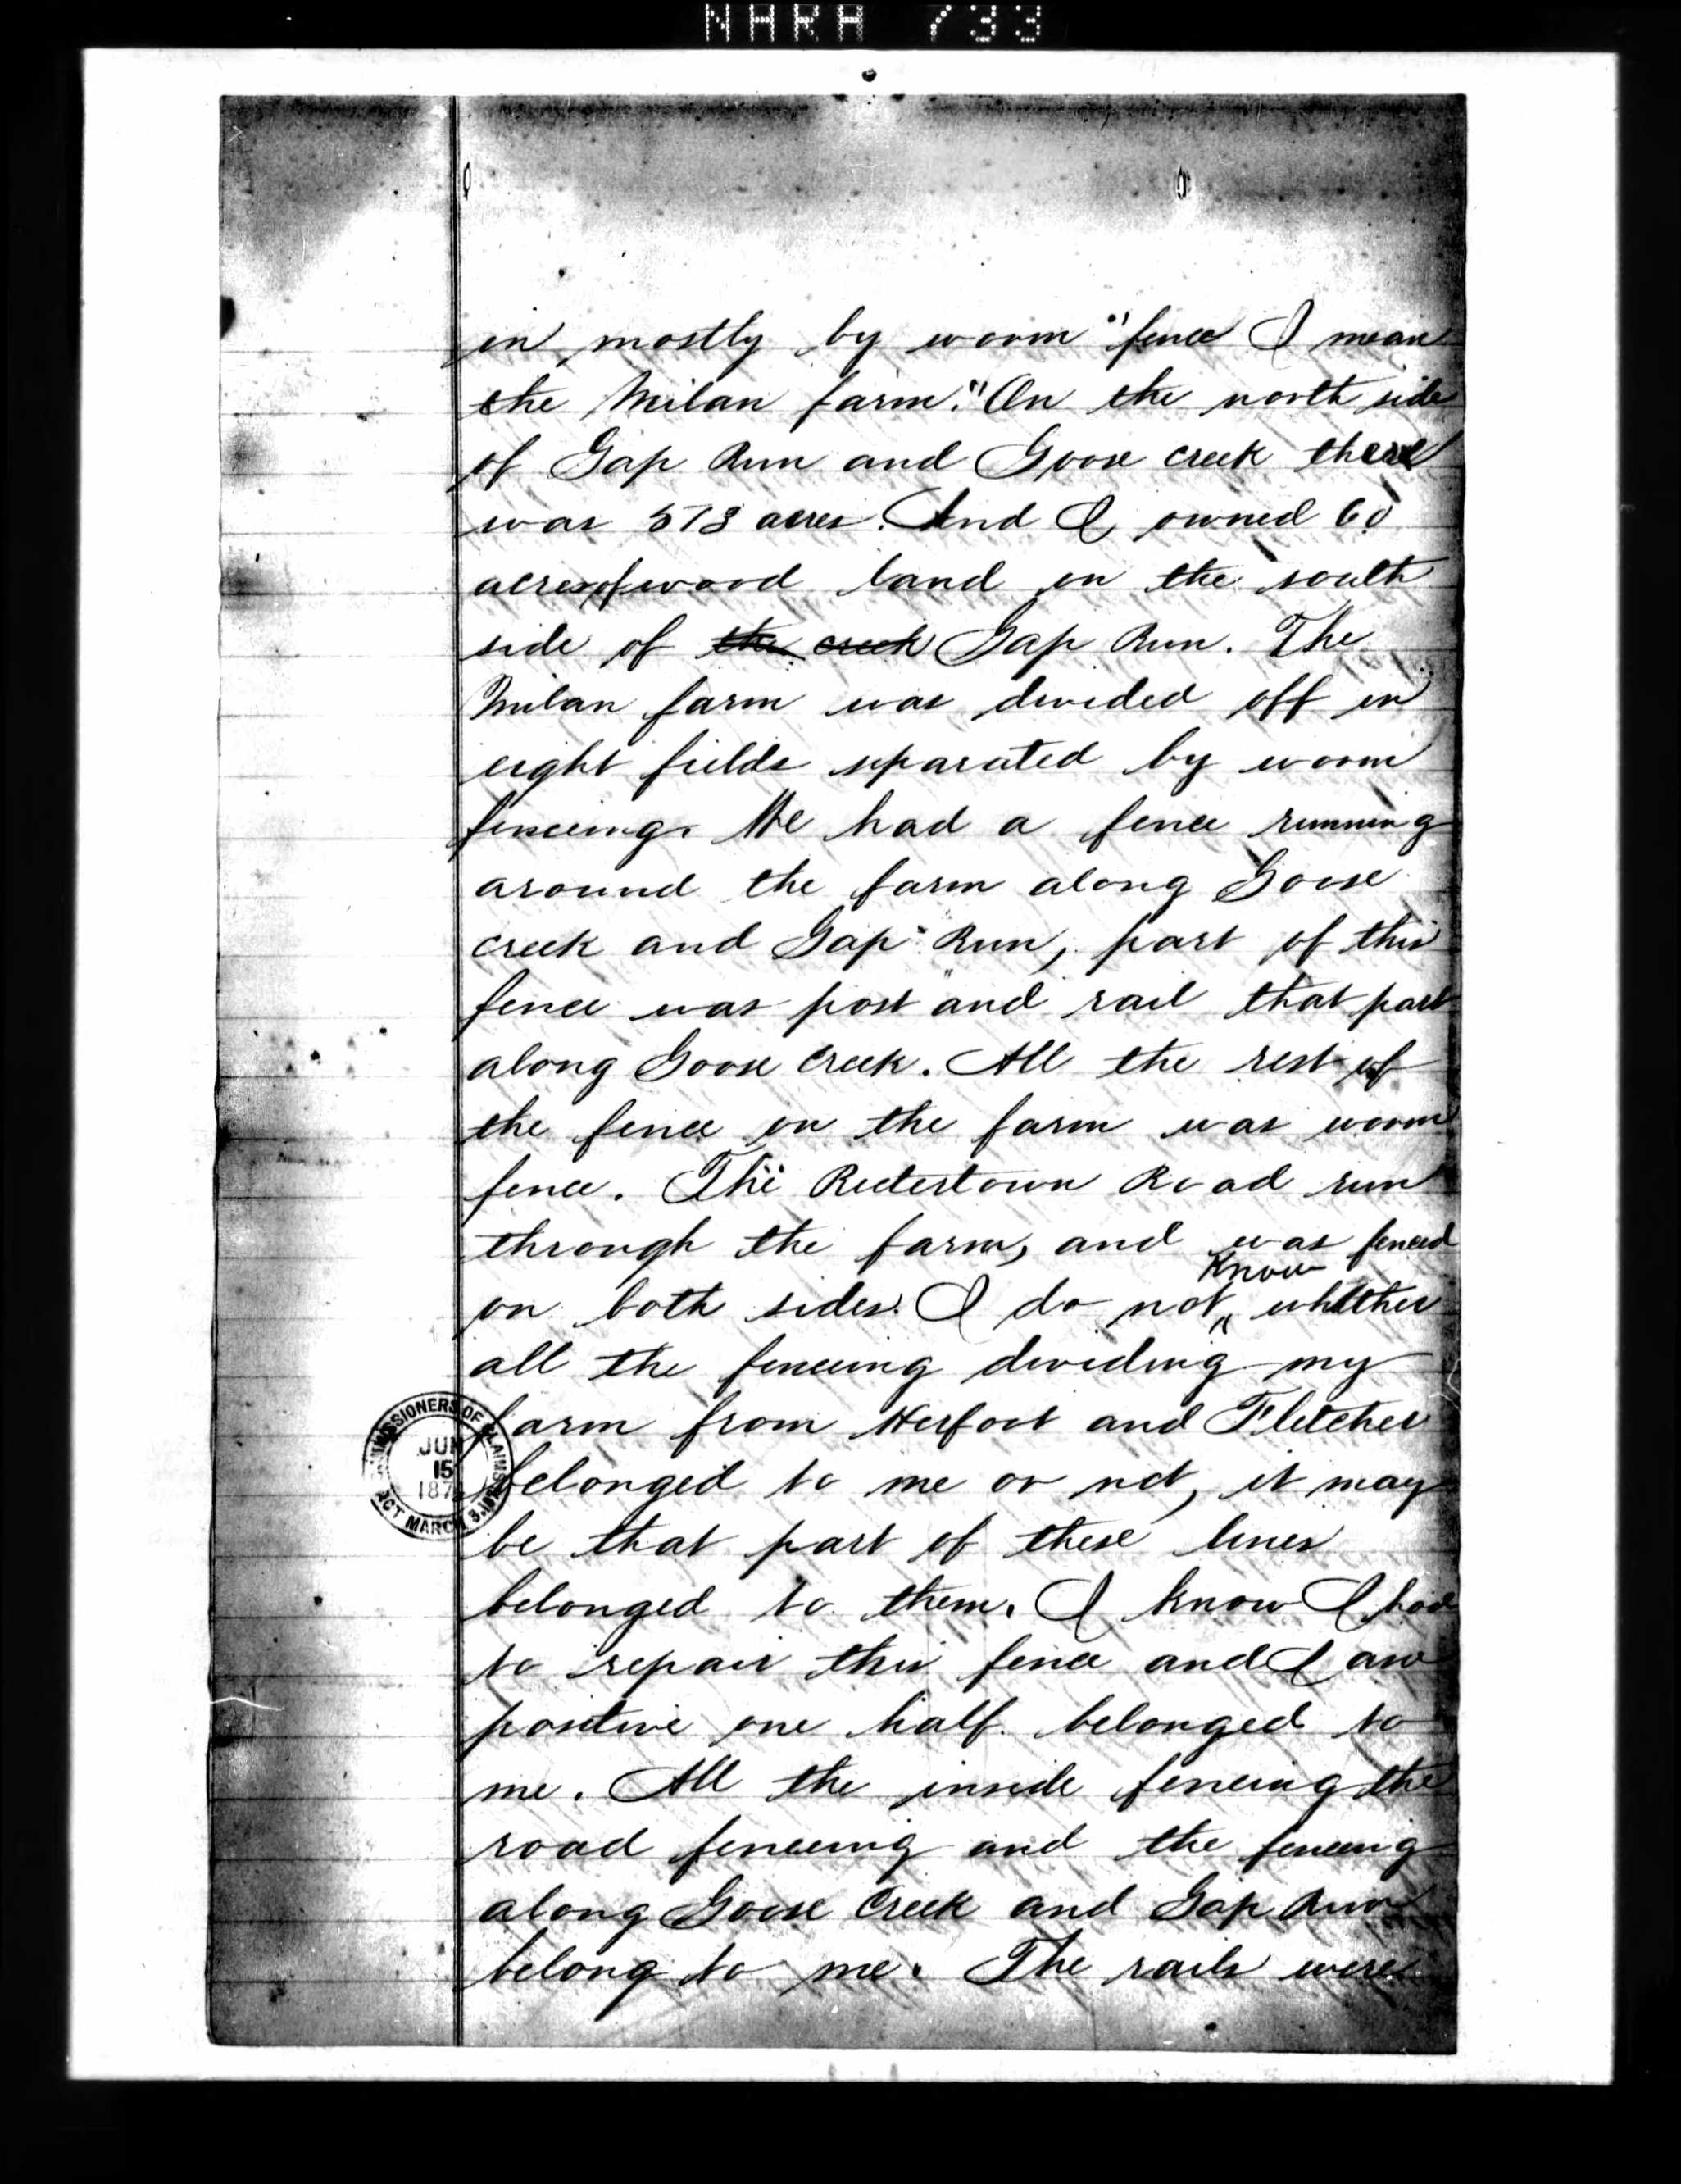 NARA 733
in mostly by worm "fence I mean
the Milan farm." On the north side
of Gap Run and Goose creek there
was 573 acres. And I owned 60
acres of wood land on the south
side of the creek Gap Run. The
Milan farm was divided off in
eight fields separated by worm
fenceing. We had a fence running
around the farm along Goose
creek and Gap Run, part of this
fence was post and rail that part
along Goose Creek. All the rest of
the fence on the farm was worm
fence. The Rectertown Road run
through the farm, and was fenced
know
on both sides. I do not whether
all the fenceing dividing my
farm from Herfoot and Fletcher
belonged to me or not, it may
be that part of these lines
belonged to them. I know I had
to repair this fence and I am
positive one half belonged to
me. All the inside fencing the
road fenceing and the fenceing
along Goose Creek and Gap Run
belong to me. The rails were
COMMISSIONERS OF CLAIMS
JUN
15
187
ACT MARCH 3, 1871